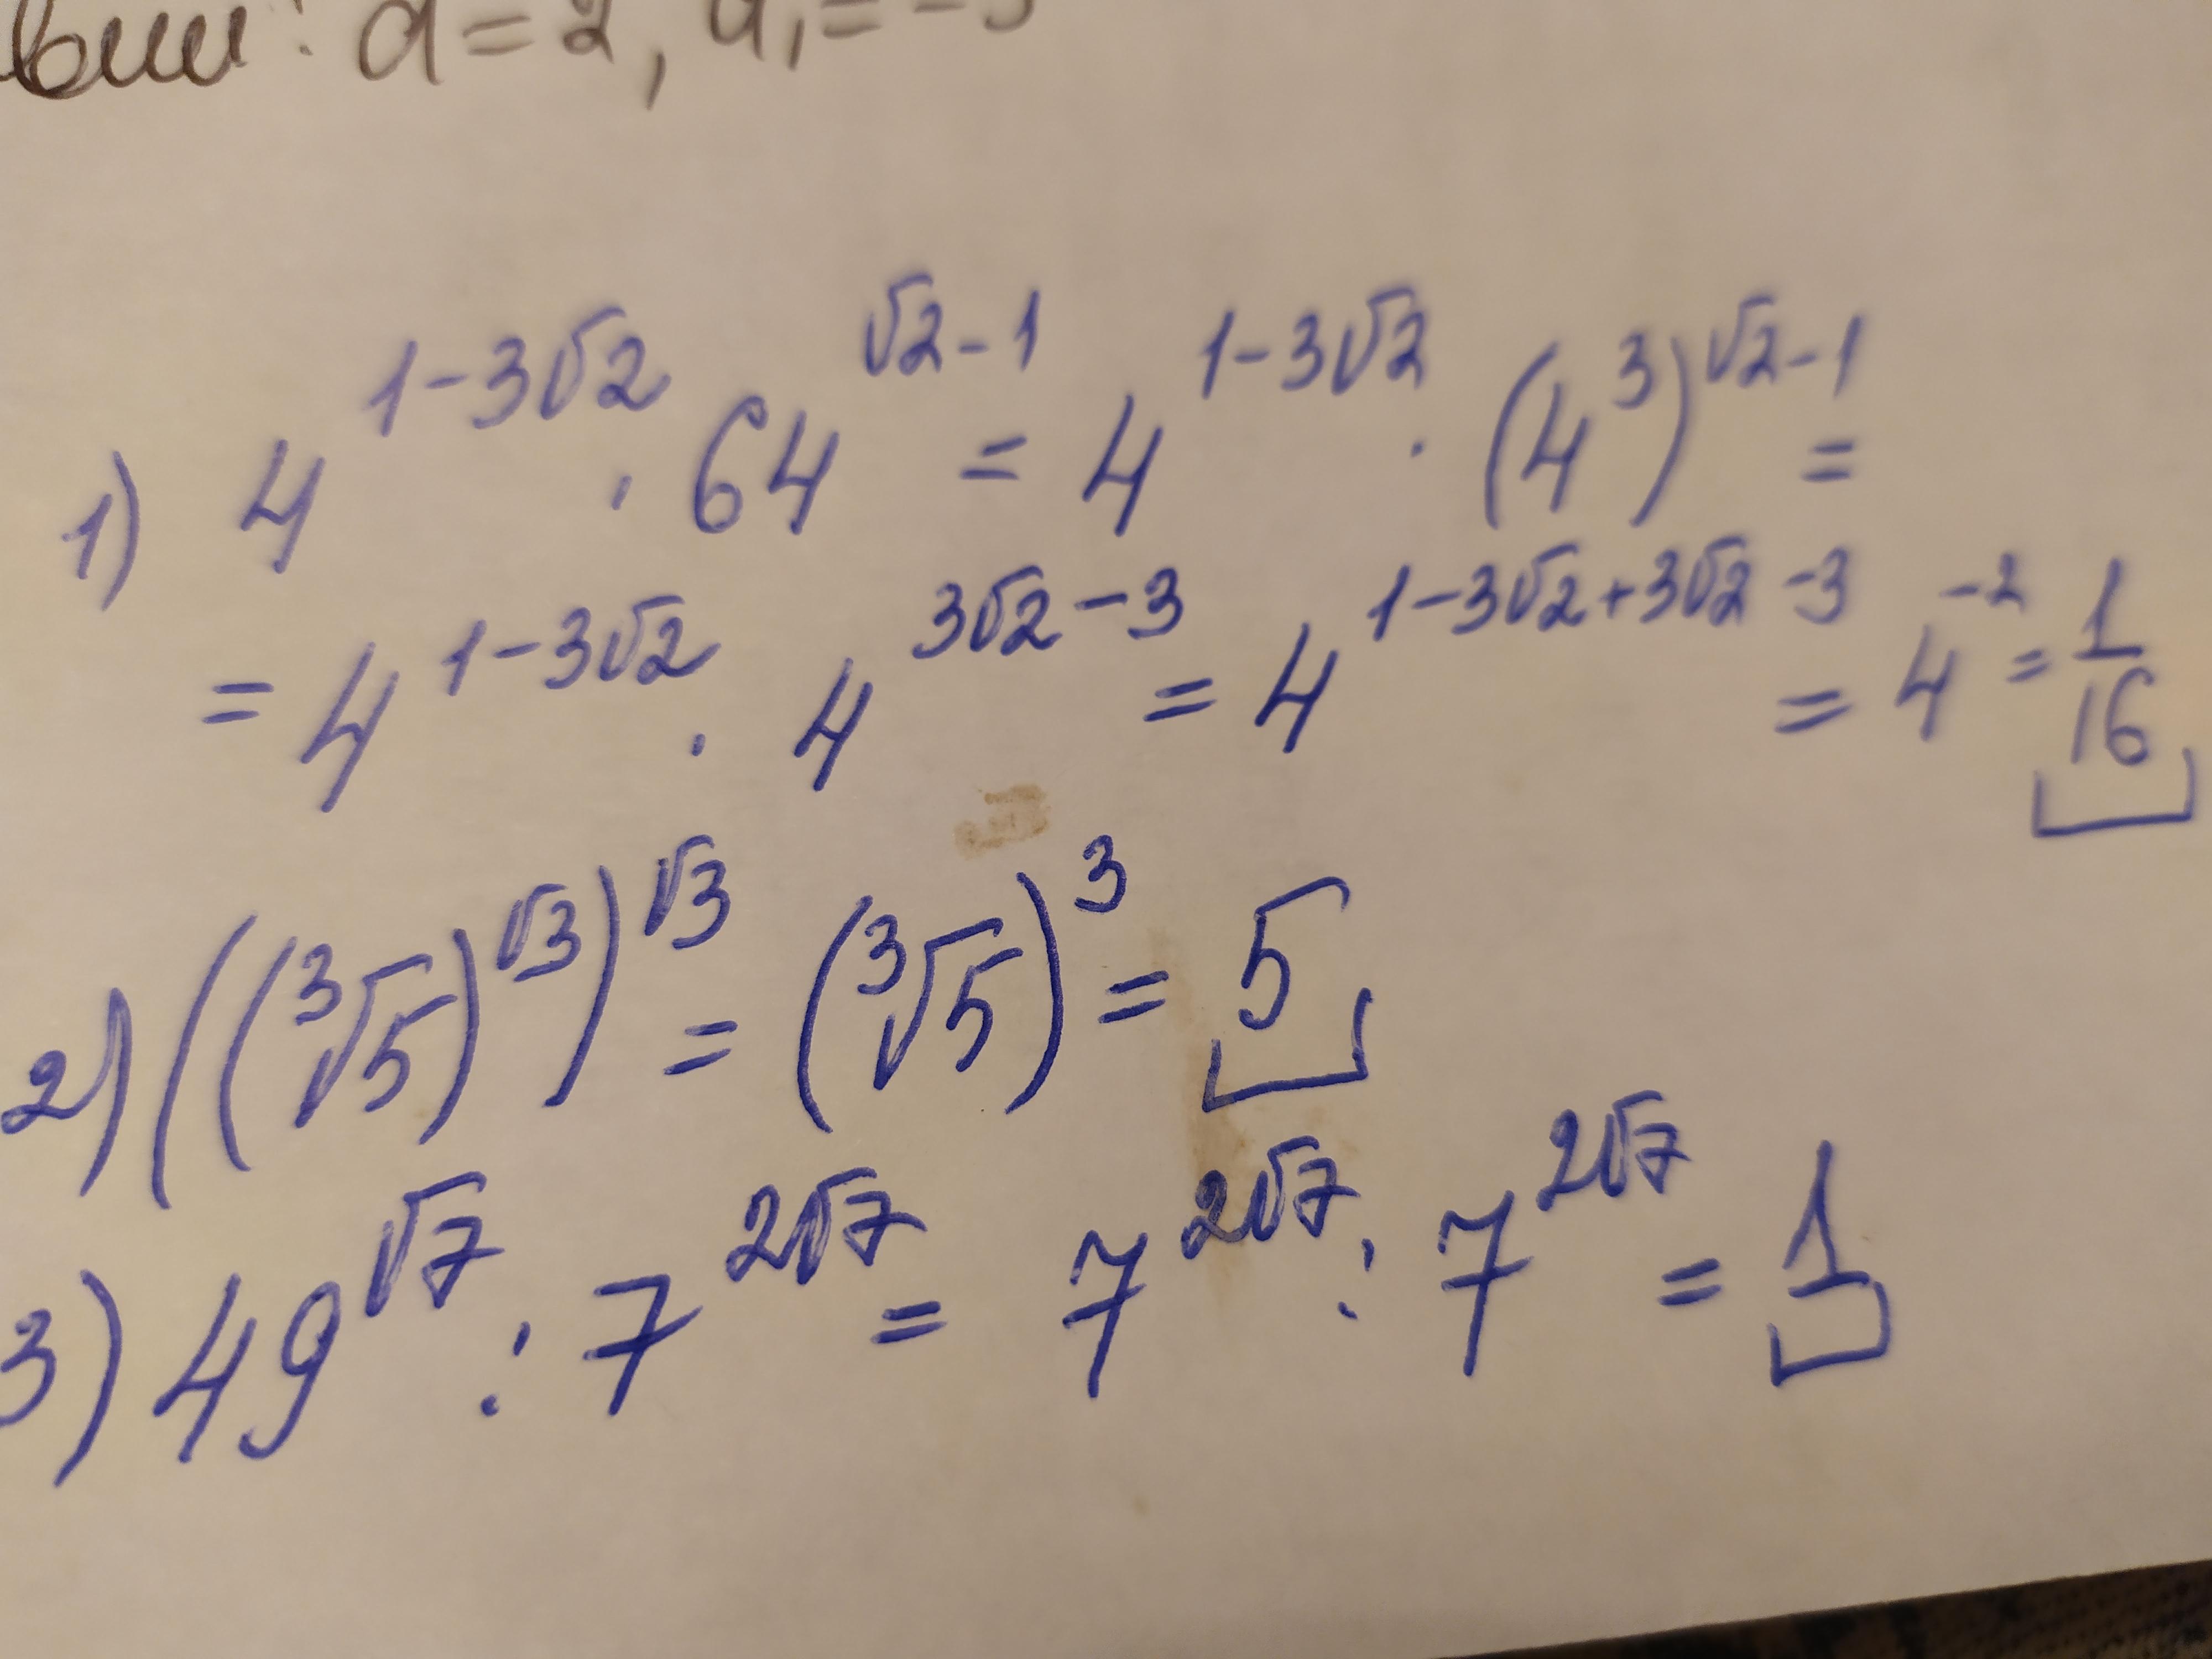 d = 2, a₁ = -3
1) 4^(1-3√2) · 64^(√2-1) = 4^(1-3√2) · (4³)^(√2-1) =
= 4^(1-3√2) · 4^(3√2-3) = 4^(1-3√2+3√2-3) = 4^(-2) = 1/16
2) ((³√5)^√3)^√3 = (³√5)³ = 5
3) 49^√7 : 7^(2√7) = 7^(2√7) : 7^(2√7) = 1